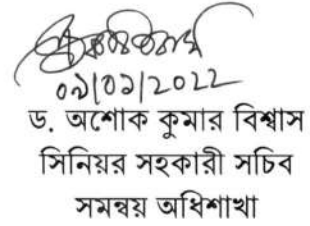 ০৯|০১|2022
ড. অশোক কুমার বিশ্বাস
সিনিয়র সহকারী সচিব
সমন্বয় অধিশাখা